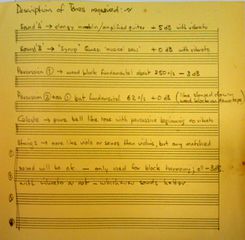 Description of Tones required :-
Sound "A" - clangy mandolin/amplified guitar + 5dB with vibrato
Sound "B" - "syrup" tones "musical saw" + 0 dB with vibrato
Percussion ① - wood block fundamental about 250 c/s - 3dB
Percussion ② - as ① but fundamental 62 c/s + 0 dB (like slowed down wood block on tape
Celeste - pure bell like tone with percussive beginning no vibrato
Strings - more like viols or vox than violins, but any matched
sound will be ok - only used for block harmony, at - 3dB
with vibrato or not - whichever sounds better